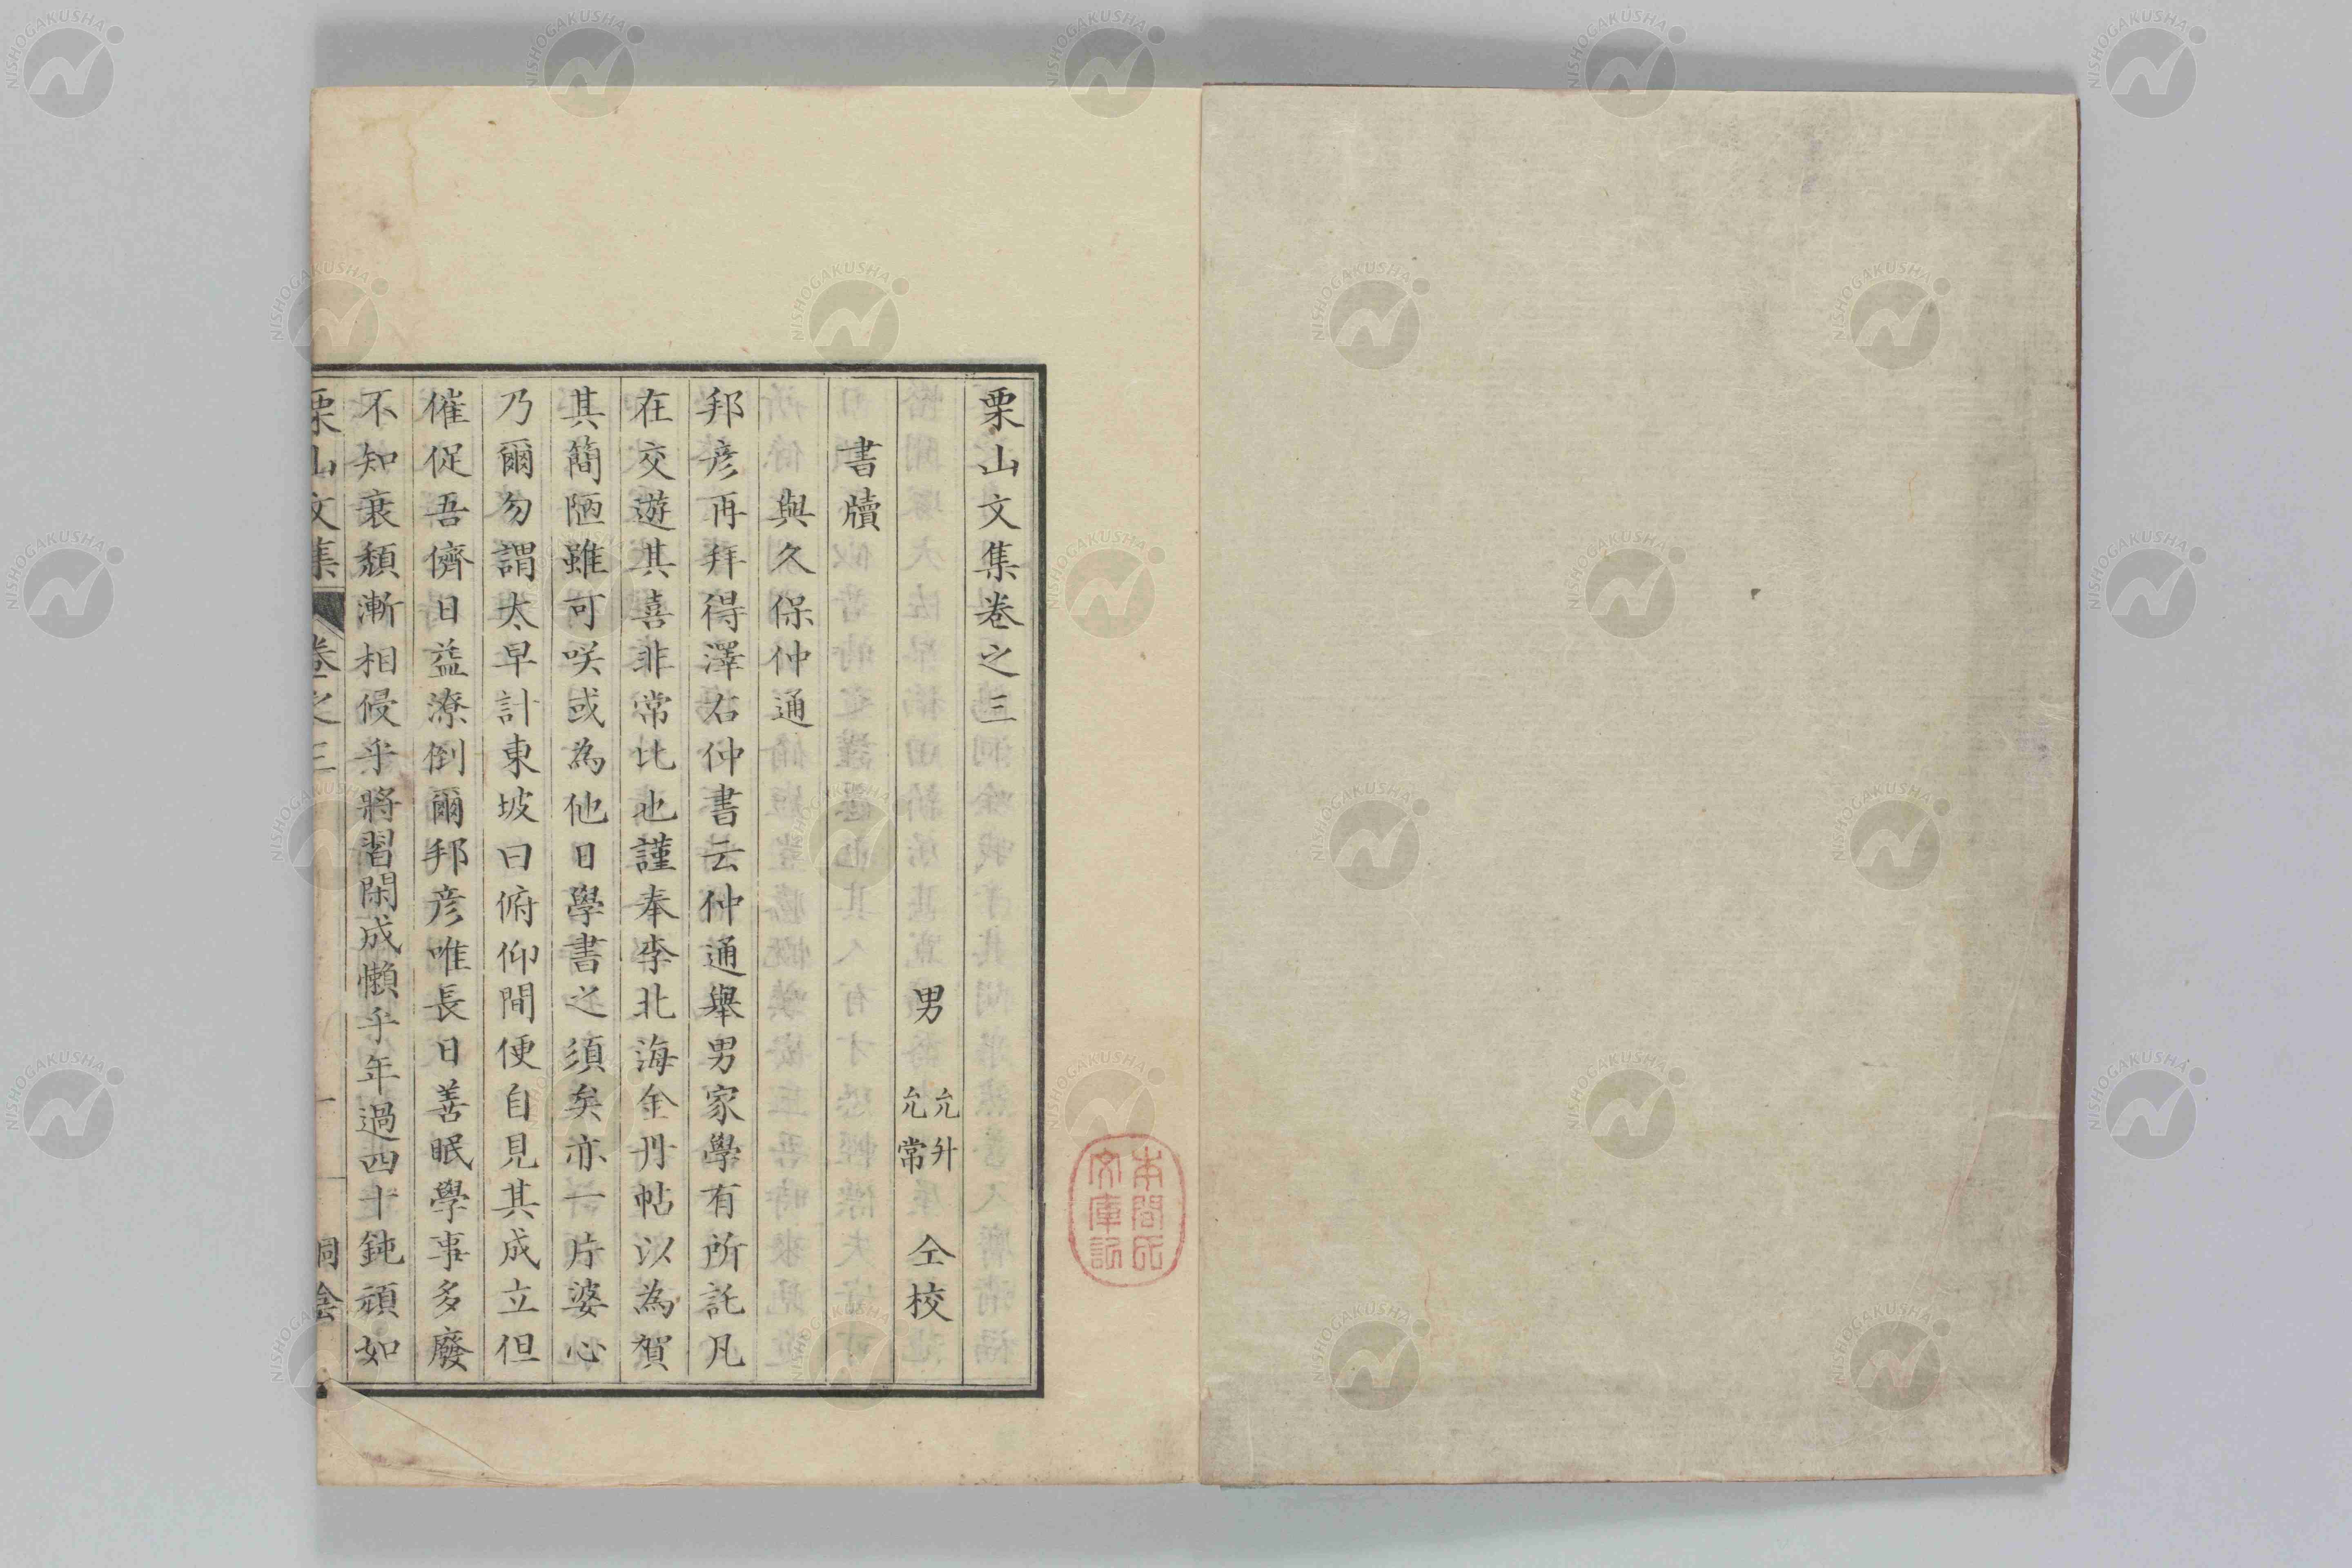 栗山文集卷之三
男 允升 允常 仝校
書牘
與久保仲通
邦彦再拜得澤右仲書云仲通舉男家學有所託凡
在交遊其喜非常比也謹奉李北海金丹帖以為賀
其簡陋雖可咲或為他日學書之須矣亦一片婆心
乃爾勿謂太早計東坡曰俯仰間便自見其成立但
催促吾儕日益潦倒爾邦彦唯長日善眠學事多廢
不知衰頽漸相侵乎將習閑成懶乎年過四十鈍頑如
栗山文集 卷之三 一
本間氏
文庫記
NISHOGAKUSHA